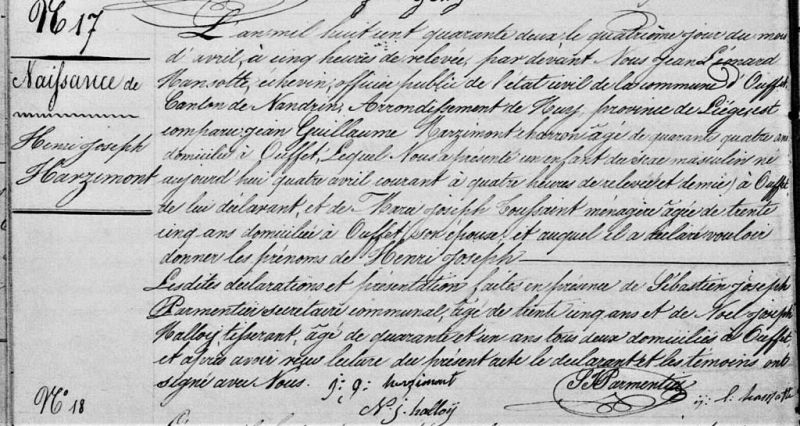 N° 17
Naissance de
Henri Joseph
Harzimont
L'an mil huit cent quarante deux le quatrième jour du mois
d'avril, à cinq heures de relevée, par devant Nous Jean Léonard
Hansotte, échevin, officier public de l'état civil de la commune d'Ouffet,
Canton de Nandrin, Arrondissement de Huy, province de Liège, est
comparu jean Guillaume Harzimont charron âgé de quarante quatre ans
domicilié à Ouffet, Lequel Nous a présenté un enfant du sexe masculin né
aujourd'hui quatre avril courant à quatre heures de relevée et demie, à Ouffet
de lui déclarant, et de Marie Joseph Toussaint ménagère âgée de trente
cinq ans domiciliée à Ouffet, son épouse, et auquel il a déclaré vouloir
donner les prénoms de Henri Joseph
Lesdites déclarations et présentation faites en présence de Sébastien Joseph
Parmentier secrétaire communal, âgé de trente cinq ans et de Noel Joseph
Halloy tisserant, âgé de quarante et un ans tous deux domiciliés à Ouffet
et après avoir reçu lecture du présent acte le déclarant et les témoins ont
signé avec Nous.
j: g: harzimont
S J Parmentier
N. j. halloÿ
j: l: hansotte
N° 18